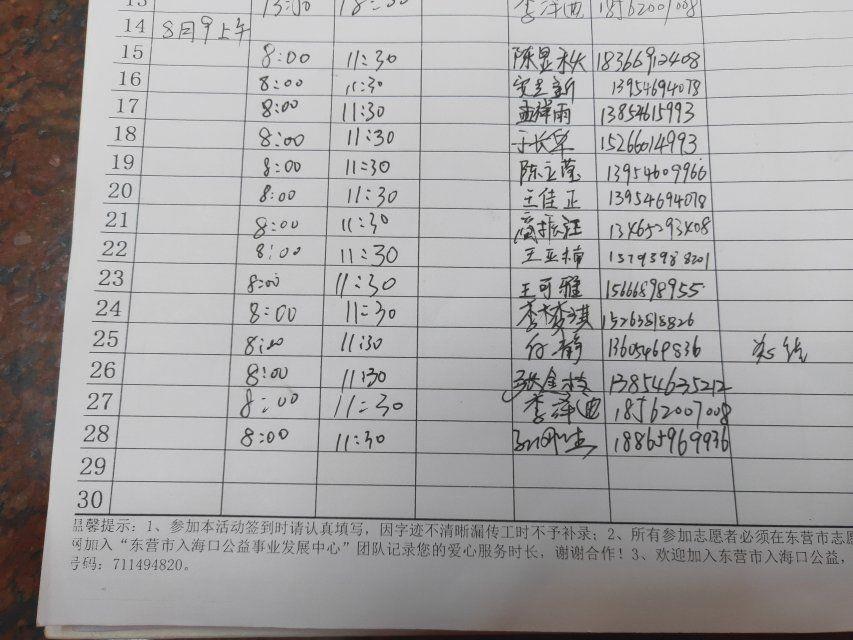 13 13:30 18:30 李泽迪 18562007008
14 8月9上午
15 8:00 11:30 陈显秋 18366912408
16 8:00 11:30 13954694078
17 8:00 11:30 孟祥雨 13854615993
18 8:00 11:30 于长军 15266014993
19 8:00 11:30 陈立莹 13954609966
20 8:00 11:30 王佳正 13954694078
21 8:00 11:30 高振汪 13465293408
22 8:00 11:30 王亚楠
23 8:00 11:30 王可雅 15666898955
24 8:00 11:30 李梦淇 15263818826
25 8:00 11:30 付静 13605469836
26 8:00 11:30 张金枝 13854635212
27 8:00 11:30 李泽迪 18562007008
28 8:00 11:30 18865969936
29
30
温馨提示：1、参加本活动签到时请认真填写，因字迹不清晰漏传工时不予补录；2、所有参加志愿者必须在东营市志愿
网加入“东营市入海口公益事业发展中心”团队记录您的爱心服务时长，谢谢合作！3、欢迎加入东营市入海口公益，
号码：711494820。